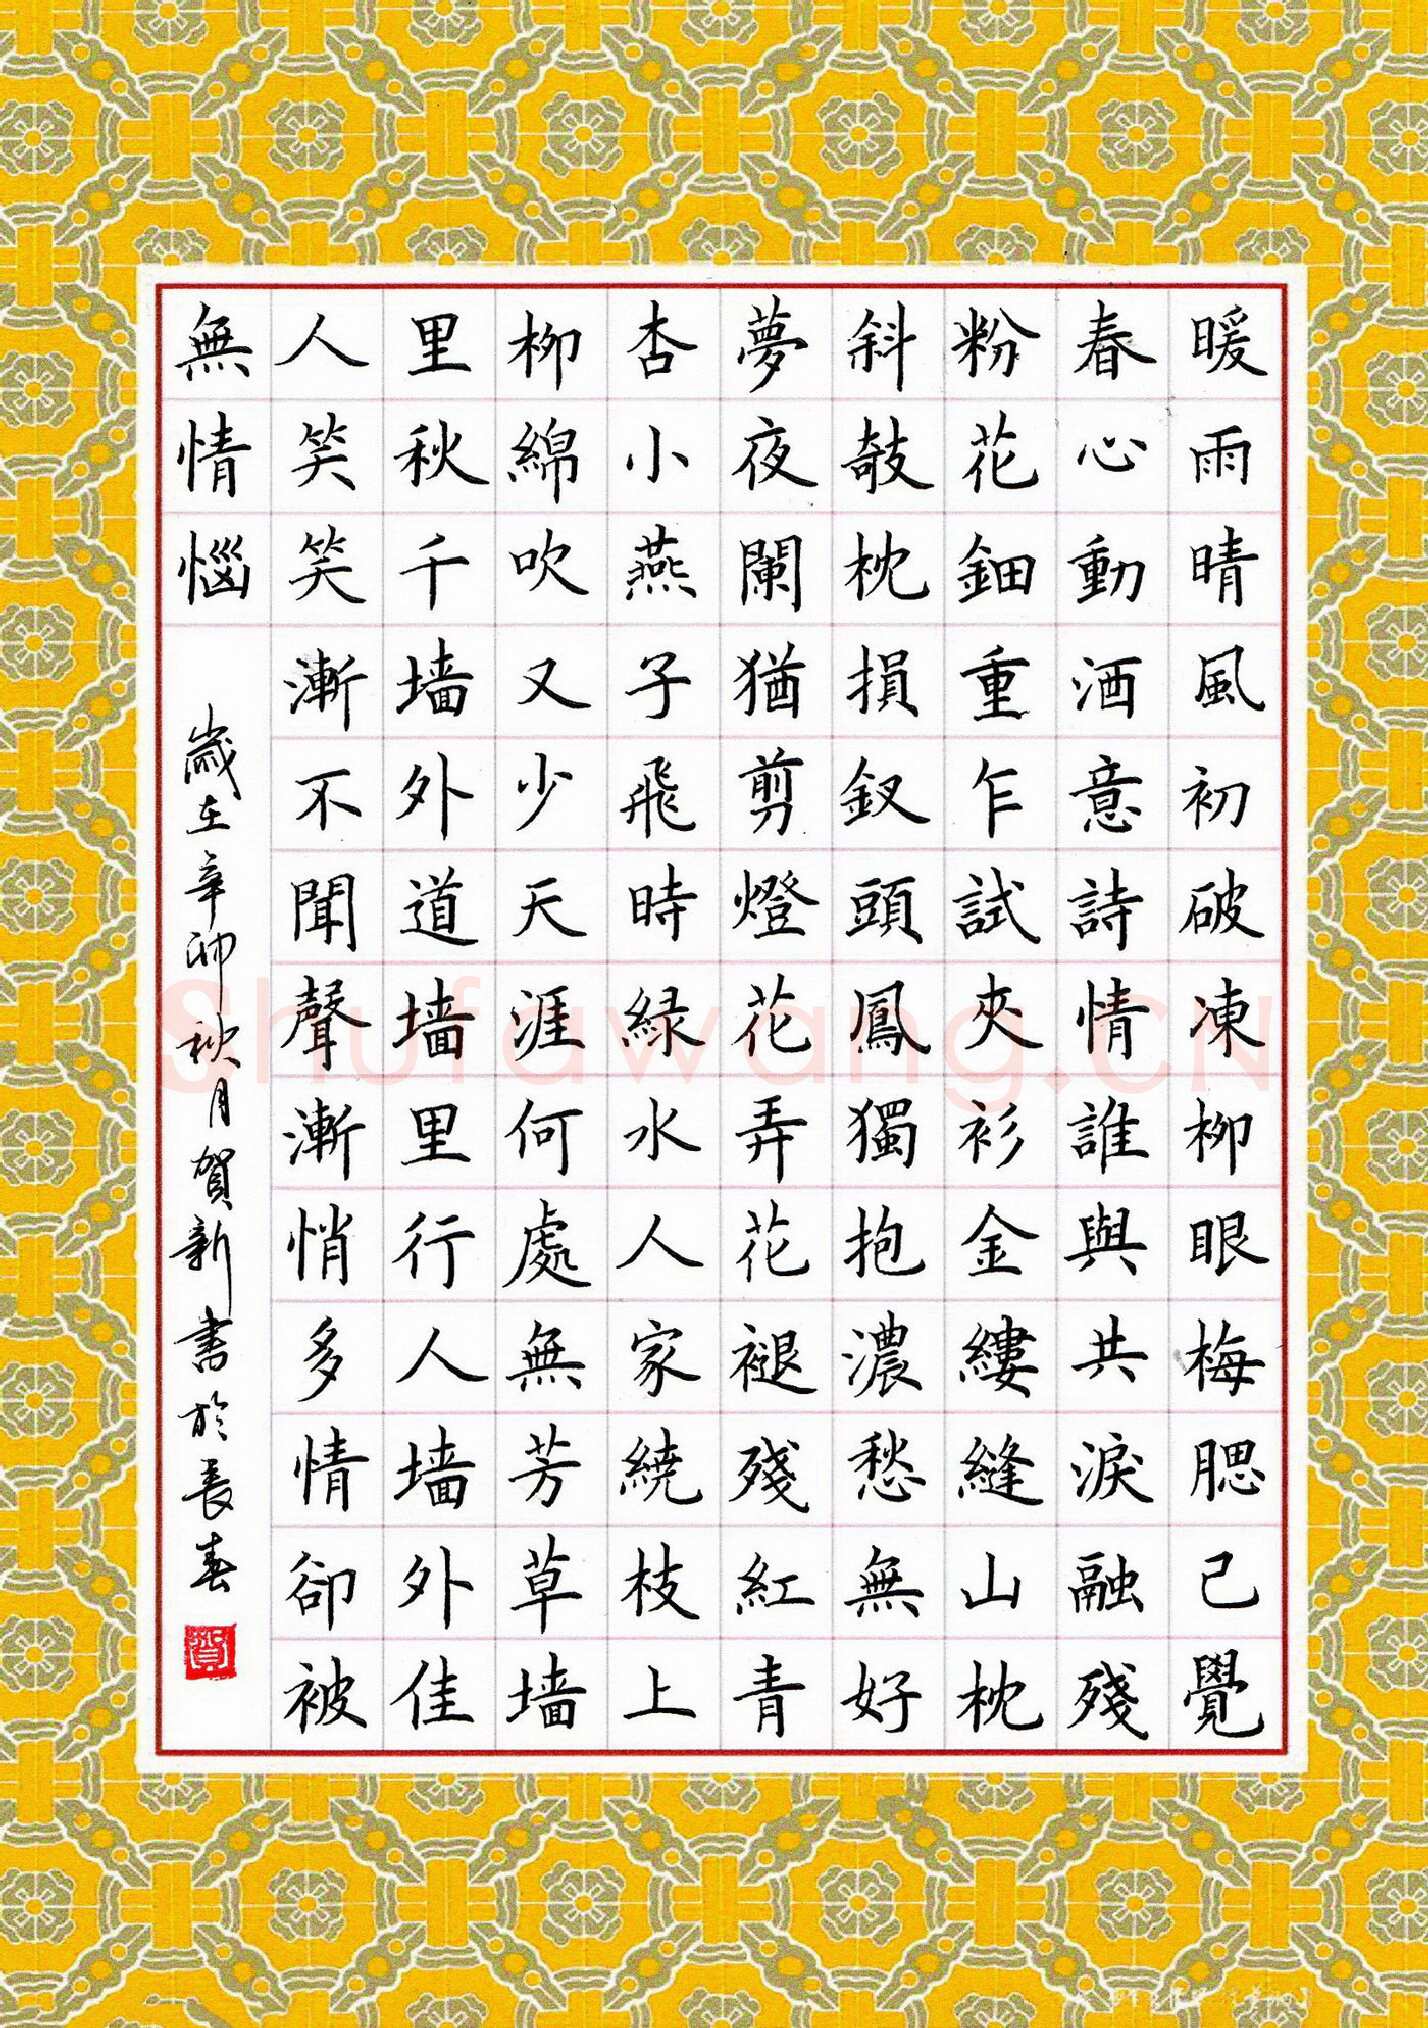 暖雨晴風初破凍柳眼梅腮已覺
春心動酒意詩情誰與共淚融殘
粉花鈿重乍試夾衫金縷縫山枕
斜敧枕損釵頭鳳獨抱濃愁無好
夢夜闌猶剪燈花弄花褪殘紅青
杏小燕子飛時緑水人家繞枝上
柳綿吹又少天涯何處無芳草墙
里秋千墙外道墙里行人墙外佳
人笑笑漸不聞聲漸悄多情卻被
無情惱
歲在辛卯秋月賀新書於長春
賀
Shufawang.CN